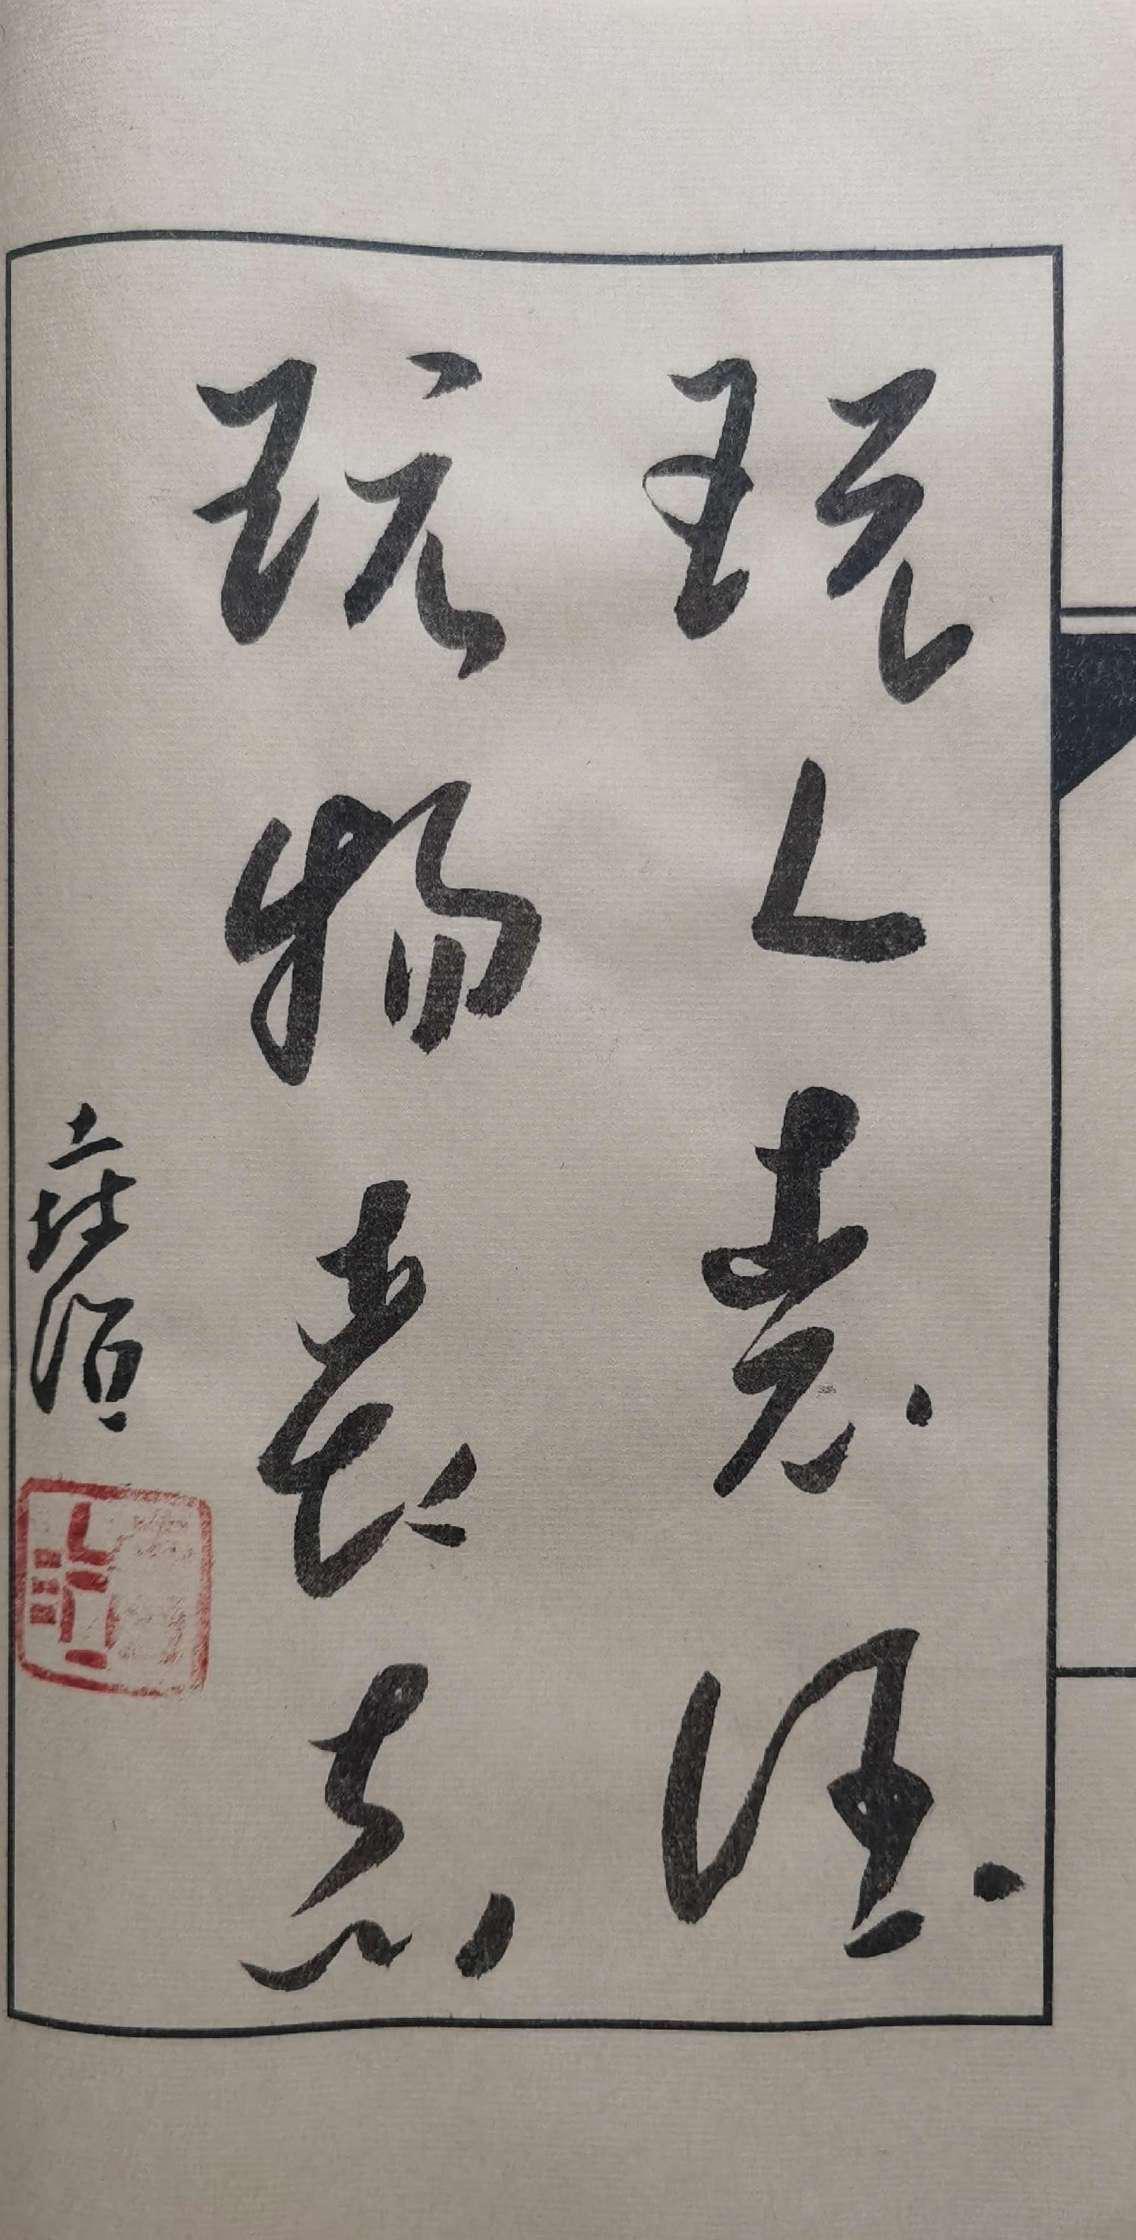 玩人丧德
玩物丧志